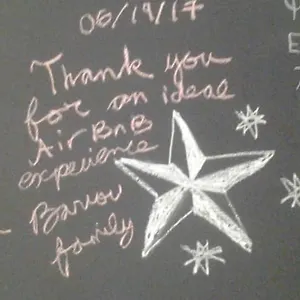 06/19/17
Thank you
for an ideal
Air BnB
experience
- Barrow
family